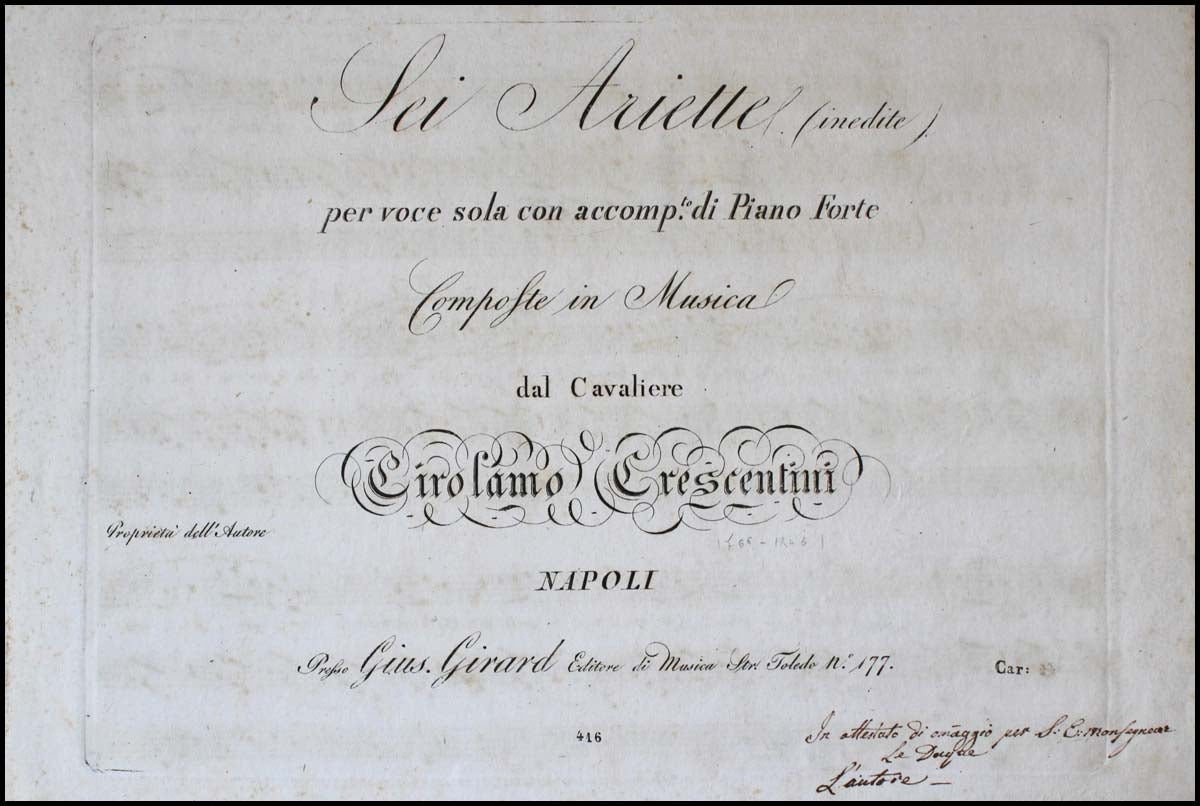 Sei Ariette (inedite)
per voce sola con accomp.to di Piano Forte
Composte in Musica
dal Cavaliere
Girolamo Crescentini
Proprietà dell'Autore
NAPOLI
Presso Gius. Girard Editore di Musica Str. Toledo N.o 177.
Car:
416
In attestato di omaggio per S: E: Monsegneur
Le Duque
L'autore —